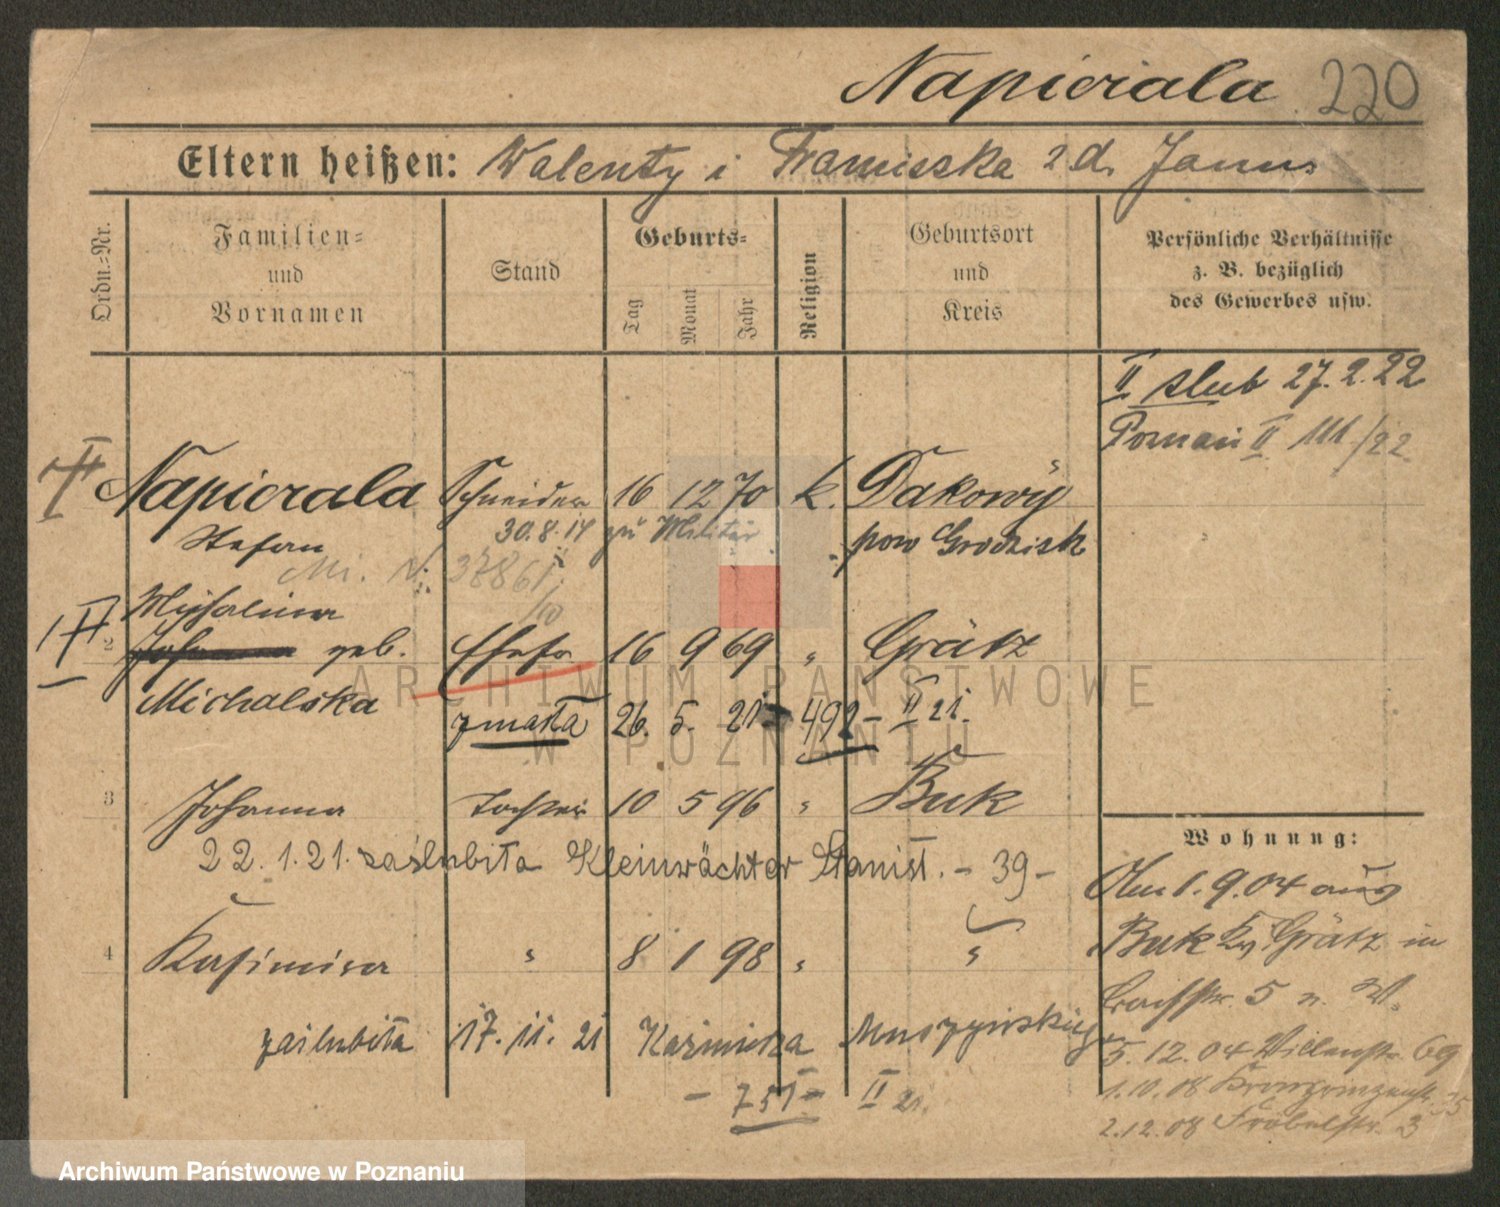 Napierala 220
Eltern heißen: Walenty i Franciszka z d. Janus
Ordn.-Nr.
Familien-
und
Vornamen
Stand
Geburts-
Tag
Monat
Jahr
Religion
Geburtsort
und
Kreis
Persönliche Verhältnisse
z. B. bezüglich
des Gewerbes usw.
II slub 27.2.22
Poznań II 111/22
Napierala Schneider 16 12 70 k. Dakowy
Stefan 30.8.14 zu Militär pow Grodzisk
Michalina
2 Johanna geb. Ehefr 16 9 69 " Grätz
Michalska
zmarła 26. 5. 21 - 492 - II 21.
3 Johanna Tochter 10 5 96 " Buk
22.1.21. zaślubiła Kleinwächter Stanisł. - 39 -
4 Kasimira " 8 1 98 " "
zaślubiła 17. 11. 21 Kaźmierza Muszyńskieg
- 751 - II 21.
Wohnung:
1.9.04 aus
Buk Kr Grätz in
5 n. W.
5.12.04 69
1.10.08 Kronprinzenstr. 35
2.12.08 Fröbelstr. 3
ARCHIWUM PAŃSTWOWE
W POZNANIU
Archiwum Państwowe w Poznaniu